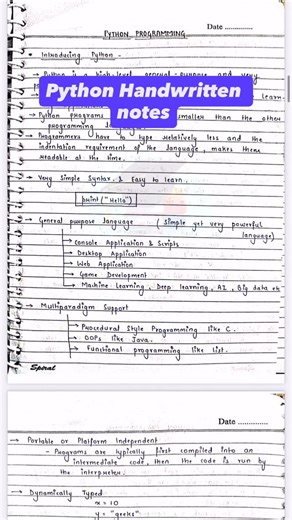 Date ..............
PYTHON PROGRAMMING
• Introducing Python -
→ Python is a high-level, general-purpose and very
learn
Python Handwritten
notes
→ Python programs smaller than the other
programming
→ Programmers have to type relatively less and the
indentation requirement of the language, makes them
readable all the time.
→ Very Simple Syntax & Easy to learn.
print ("Hello")
→ General purpose language ( Simple yet very powerful
language)
→ Console Application & Scripts
→ Desktop Application
→ Web Application
→ Game Development
→ Machine Learning, Deep learning, AI, Big data etc
→ Multiparadigm Support
→ Procedural Style Programming like C.
→ OOPs like Java.
→ Functional programming like list.
Spiral
Date ..............
→ Portable or Platform Independent
- Programs are typically first compiled into an
intermediate code, then the code is run by
the interpreter.
→ Dynamically Typed
x = 10
y = "geeks"